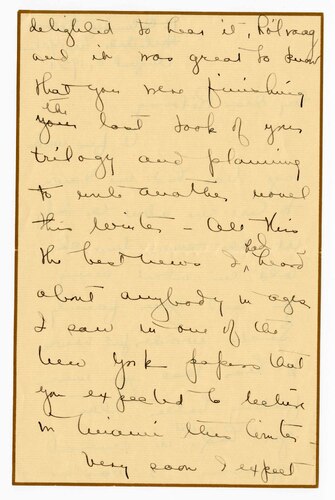 delighted to hear it, Rölvaag
and it was great to know
that you were finishing
the
last book of your
trilogy and planning
to write another novel
this winter – All this
the best news I had heard
about anybody in ages
I saw in one of the
New York papers that
you expected to lecture
in Miami this winter –
Very soon I expect